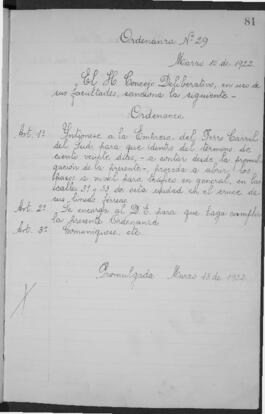 81
Ordenanza Nº 29
Marzo 10 de 1922
El H. Concejo Deliberativo, en uso de
sus facultades, sanciona la siguiente-
Ordenanza
Art. 1º Intímese a la Empresa del Ferro Carril
del Sud, para que dentro del término de
ciento veinte días, - a contar desde la promul
gación de la presente -, proceda a abrir los
pasos a nivel para tráfico en general, en las
calles 31 y 33 de esta ciudad en el cruce de
sus lineas férreas
Art. 2º Se encarga al D. E. para que haga cumplir
la presente Ordenanza
Art. 3º Comuníquese, etc.
Promulgada Marzo 13 de 1922